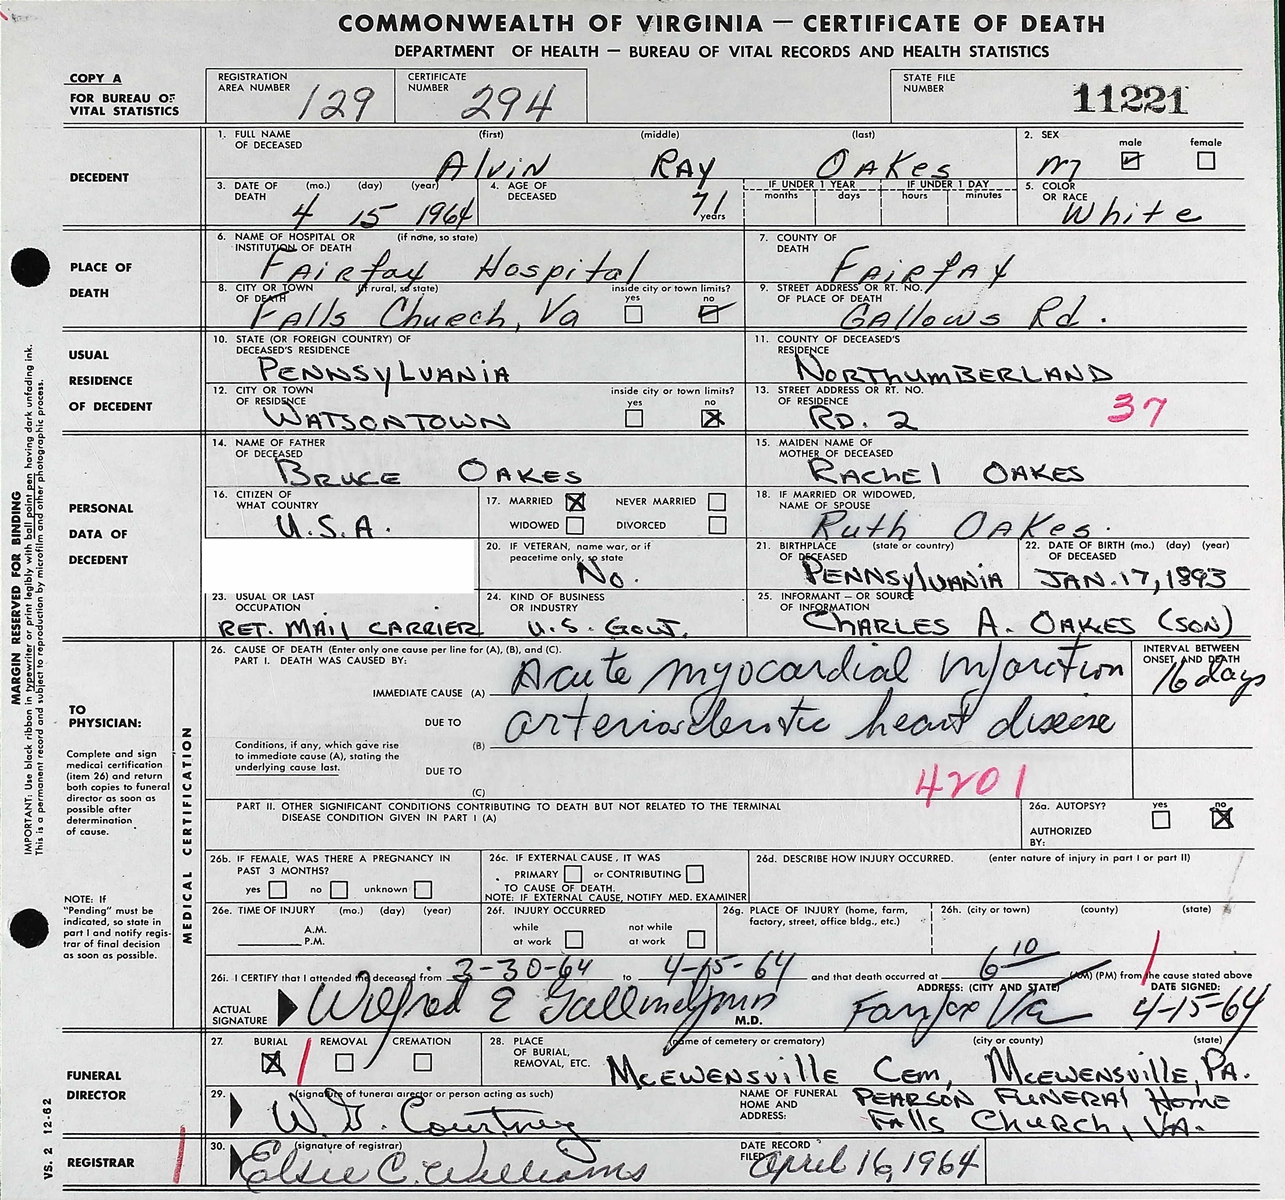 COMMONWEALTH OF VIRGINIA — CERTIFICATE OF DEATH
DEPARTMENT OF HEALTH — BUREAU OF VITAL RECORDS AND HEALTH STATISTICS
COPY A
FOR BUREAU OF VITAL STATISTICS
REGISTRATION AREA NUMBER 129
CERTIFICATE NUMBER 294
STATE FILE NUMBER 11221
DECEDENT
1. FULL NAME OF DECEASED (first) (middle) (last)
Alvin RAY OAKES
2. SEX male female
M
3. DATE OF DEATH (mo.) (day) (year)
4 15 1964
4. AGE OF DECEASED 71 years
IF UNDER 1 YEAR months days
IF UNDER 1 DAY hours minutes
5. COLOR OR RACE
White
PLACE OF DEATH
6. NAME OF HOSPITAL OR INSTITUTION OF DEATH (if none, so state)
Fairfax Hospital
7. COUNTY OF DEATH
FAIRFAX
8. CITY OR TOWN OF DEATH (if rural, so state) inside city or town limits? yes no
Falls Church, Va
9. STREET ADDRESS OR RT. NO. OF PLACE OF DEATH
GALLOWS Rd.
USUAL RESIDENCE OF DECEDENT
10. STATE (OR FOREIGN COUNTRY) OF DECEASED'S RESIDENCE
PENNSYLVANIA
11. COUNTY OF DECEASED'S RESIDENCE
NORTHUMBERLAND
12. CITY OR TOWN OF RESIDENCE inside city or town limits? yes no
WATSONTOWN
13. STREET ADDRESS OR RT. NO. OF RESIDENCE
RD. 2 37
PERSONAL DATA OF DECEDENT
14. NAME OF FATHER OF DECEASED
BRUCE OAKES
15. MAIDEN NAME OF MOTHER OF DECEASED
RACHEL OAKES
16. CITIZEN OF WHAT COUNTRY
U.S.A.
17. MARRIED NEVER MARRIED
WIDOWED DIVORCED
18. IF MARRIED OR WIDOWED, NAME OF SPOUSE
Ruth OAKES.
20. IF VETERAN, name war, or if peacetime only, so state
No.
21. BIRTHPLACE OF DECEASED (state or country)
PENNSYLVANIA
22. DATE OF BIRTH (mo.) (day) (year) OF DECEASED
JAN. 17, 1893
23. USUAL OR LAST OCCUPATION
RET. MAIL CARRIER
24. KIND OF BUSINESS OR INDUSTRY
U.S. GOVT.
25. INFORMANT — OR SOURCE OF INFORMATION
CHARLES A. OAKES (SON)
MARGIN RESERVED FOR BINDING
IMPORTANT: Use black ribbon in typewriter or print legibly with ball point pen having dark unfading ink.
This is a permanent record and subject to reproduction by microfilm and other photographic process.
TO PHYSICIAN:
Complete and sign medical certification (item 26) and return both copies to funeral director as soon as possible after determination of cause.
NOTE: If "Pending" must be indicated, so state in part I and notify registrar of final decision as soon as possible.
MEDICAL CERTIFICATION
26. CAUSE OF DEATH (Enter only one cause per line for (A), (B), and (C).
PART I. DEATH WAS CAUSED BY:
INTERVAL BETWEEN ONSET AND DEATH
IMMEDIATE CAUSE (A) Acute myocardial infarction 16 days
DUE TO
(B) arteriosclerotic heart disease
Conditions, if any, which gave rise to immediate cause (A), stating the underlying cause last.
DUE TO
(C)
4201
PART II. OTHER SIGNIFICANT CONDITIONS CONTRIBUTING TO DEATH BUT NOT RELATED TO THE TERMINAL DISEASE CONDITION GIVEN IN PART I (A)
26a. AUTOPSY? yes no
AUTHORIZED BY:
26b. IF FEMALE, WAS THERE A PREGNANCY IN PAST 3 MONTHS?
yes no unknown
26c. IF EXTERNAL CAUSE, IT WAS
PRIMARY or CONTRIBUTING
TO CAUSE OF DEATH.
NOTE: IF EXTERNAL CAUSE, NOTIFY MED. EXAMINER
26d. DESCRIBE HOW INJURY OCCURRED. (enter nature of injury in part I or part II)
26e. TIME OF INJURY (mo.) (day) (year)
A.M.
P.M.
26f. INJURY OCCURRED
while at work not while at work
26g. PLACE OF INJURY (home, farm, factory, street, office bldg., etc.)
26h. (city or town) (county) (state)
26i. I CERTIFY that I attended the deceased from 3-30-64 to 4-15-64 and that death occurred at 6 10 (AM) (PM) from the cause stated above
ACTUAL SIGNATURE Wilfred E M.D.
ADDRESS: (CITY AND STATE)
Fairfax Va
DATE SIGNED:
4-15-64
FUNERAL DIRECTOR
27. BURIAL REMOVAL CREMATION
28. PLACE OF BURIAL, REMOVAL, ETC. (name of cemetery or crematory) (city or county) (state)
McEWENSVILLE Cem, McEWENSVILLE, PA.
29. (signature of funeral director or person acting as such)
W. G. Courtney
NAME OF FUNERAL HOME AND ADDRESS:
PEARSON FUNERAL HOME
FALLS CHURCH, VA.
REGISTRAR
30. (signature of registrar)
Elsie C. Williams
DATE RECORD FILED:
April 16, 1964
VS. 2 12-62